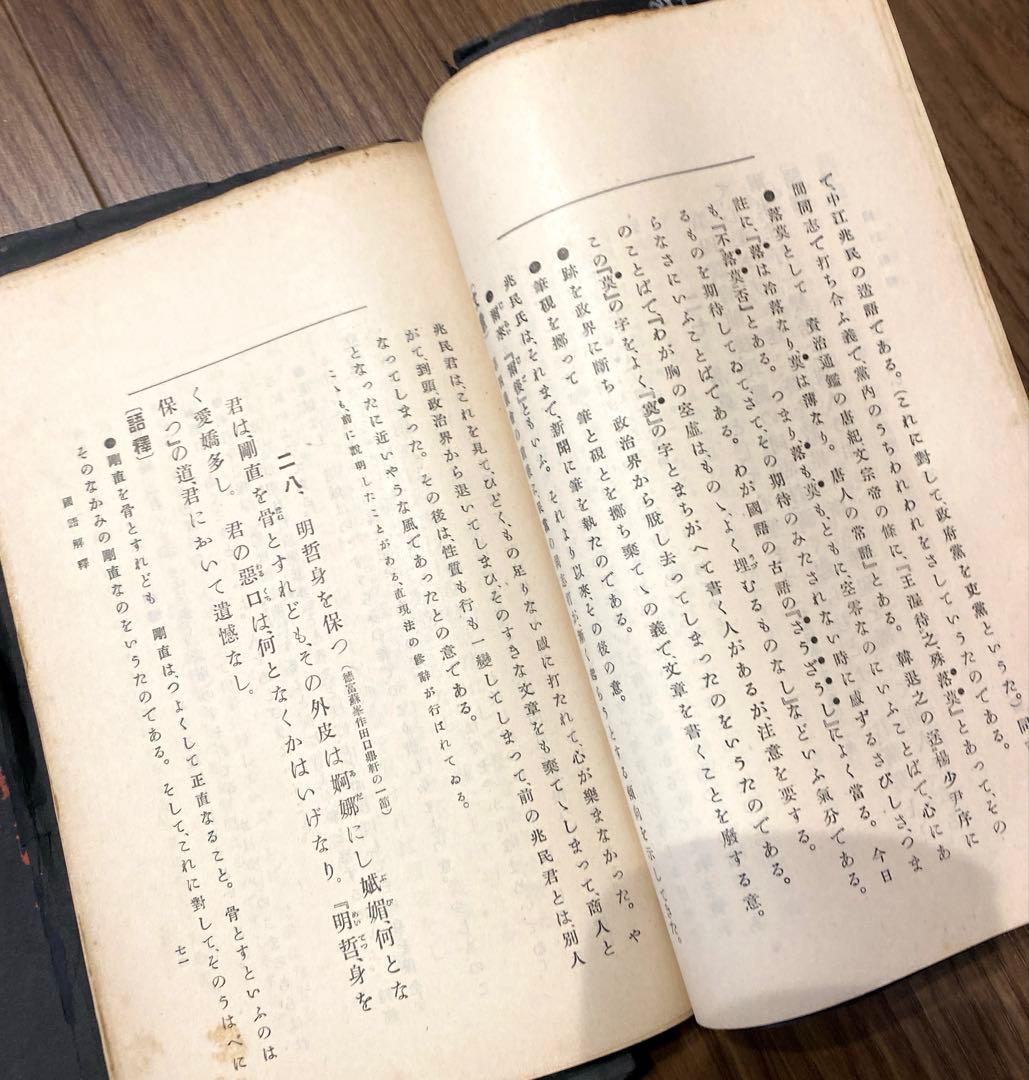 て、中江兆民の造語である。(これに對して、政府黨を吏黨というた。)同
間同志で打ち合ふ義で、黨内のうちわれわれをさしていうたのである。
●落莫として 資治通鑑の唐紀文宗帝の條に、『王涯待之殊落莫』とあつて、その
註に、『落は冷落なり莫は薄なり。唐人の常語』とある。韓退之の送楊少尹序に
も、『不落莫否』とある。つまり落も、莫も、ともに、空零なのにいふことばで、心にあ
るものを期待してゐて、さて、その期待のみたされない時に感ずるさびしさ、つま
らなさにいふことばである。わが國語の古語の『さうざうし』によく當る。今日
のことばで、『わが胸の空虚は、もの、よく埋むるものなし』などいふ氣分である。
この『莫』の字をよく、『寞』の字とまちがへて書く人があるが、注意を要する。
●跡を政界に斷ち 政治界から脱し去つてしまつたのをいうたのである。
●筆硯を擲つて 筆と硯とを擲ち棄てゝの義で、文章を書くことを廢する意。
兆民氏は、それまで、新聞に筆を執たのである。
●爾來 『爾後』ともいふ。それより以來、その後の意。
兆民君は、これを見て、ひどく、もの足りない感に打たれて、心が樂まなかつた。や
がて、到頭政治界から退いてしまひ、そのすきな文章をも棄てゝしまつて、商人と
なつてしまつた。その後は、性質も行も一變してしまつて、前の兆民君とは、別人
となつたに近いやうな風であつたとの意である。
こゝも、前に説明したことがある、直現法の修辭が行はれてゐる。
二八、明哲身を保つ(德富蘇峯作田口鼎軒の一節)
君は、剛直を骨とすれども、その外皮は婀娜にし嫵媚、何とな
く愛嬌多し。君の惡口は、何となくかはいげなり。『明哲、身を
保つ』の道、君において遺憾なし。
〔語釋〕
●剛直を骨とすれども 剛直は、つよくして正直なること。骨とすといふのは
そのなかみの剛直なのをいうたのである。そして、これに對して、そのうはべに
國語解釋
七一